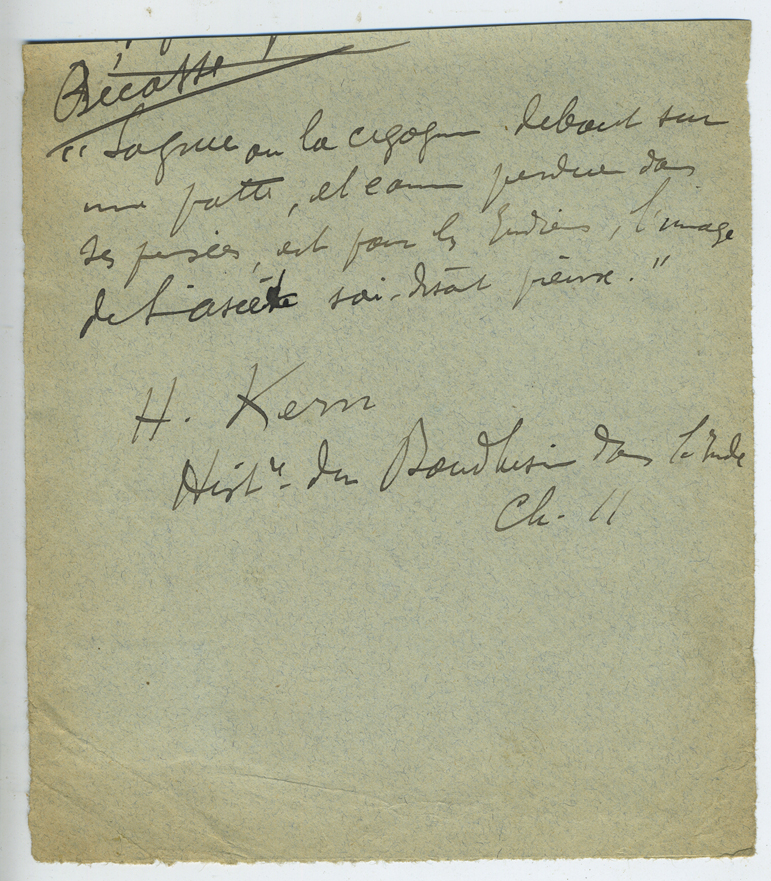 Bécasse
"La grue ou la cigogne debout sur
une patte, et comme perdue dans
ses pensées, est pour les Indiens, l'image
de l'ascète soi-disant pieux."
H. Kern
Hist^re du Boudhisme dans l'Inde
Ch. II